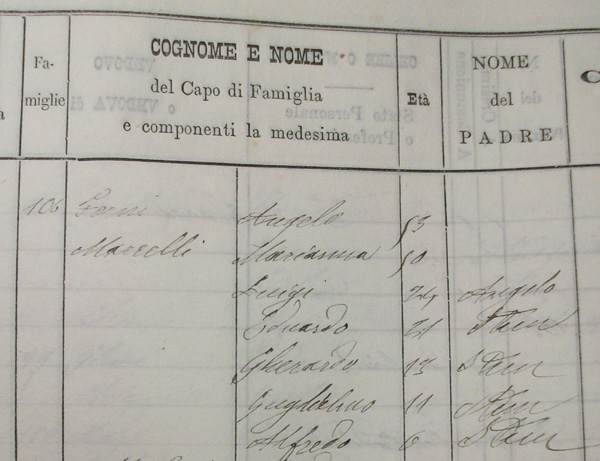 Fa-
miglie
COGNOME E NOME
del Capo di Famiglia
e componenti la medesima
Età
NOME
del
PADRE
106 Angelo 53
Marcelli Marianna 50
Luigi 24 Angelo
Eduardo 21 Idem
Gherardo 13 Idem
Guglielmo 11 Idem
Alfredo 6 Idem